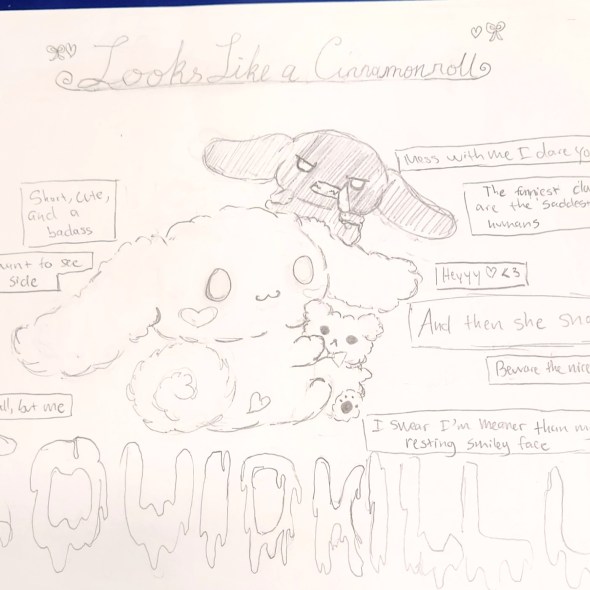 Looks Like a Cinnamonroll
Mess with me I dare yo
Short, cute,
and a
badass
The funniest clu
are the saddes
humans
want to see
side
Heyyy ♡ <3
And then she sna
Beware the nice
all, but me
I swear I'm meaner than m
resting smiley face